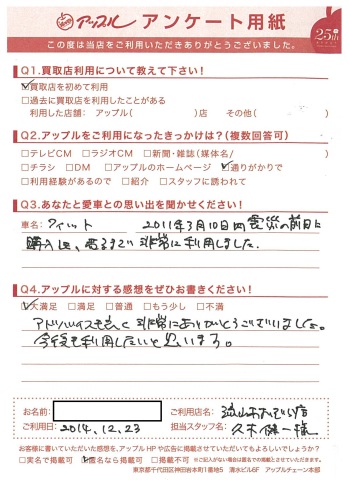 アップル アンケート用紙
25th
この度は当店をご利用いただきありがとうございました。
Q1.買取店利用について教えて下さい!
☑買取店を初めて利用
□過去に買取店を利用したことがある
利用した店舗: アップル( )店 その他( )
Q2.アップルをご利用になったきっかけは?(複数回答可)
□テレビCM □ラジオCM □新聞・雑誌(媒体名/ )
□チラシ □DM □アップルのホームページ ☑通りがかりで
□利用経験があるので □紹介 □スタッフに誘われて
Q3.あなたと愛車との思い出を聞かせください!
車名: フィット 2011年3月10日 震災の前日に
購入し、 非常に利用しました.
Q4.アップルに対する感想をぜひお書きください!
☑大満足 □満足 □普通 □もう少し □不満
アドバイスももらって 非常にありがとうございました。
今後も利用したいと思います。
お名前:
ご利用店名:
ご利用日: 2014.12.23
担当スタッフ名: 久木健一様
お客様に書いていただいた感想を、アップルHPや広告に掲載させていただいてもよろしいでしょうか?
□実名で掲載可 ☑匿名なら掲載可 □掲載不可 ※ご記入がない場合は匿名での掲載とさせていただきます。
東京都千代田区神田台本町1番地5 清水ビル6F アップルチェーン本部